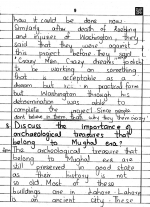 how it could be done now
Similarly after death of Roebling
and injuries of Washington, they
said that they were against
this project. Before they said
"Crazy Men Crazy dreams foolish
to be working on something
that is acceptable as a
dream but not in practical form
but Washington through his
determination was able to
complete the project. Since people
dont believe in them that's why they them crazy"
Discuss the importance of
archaeological treasures that
belong to Mughal era?
The archeological treasures that
belong to Mughal era are
still preserved in good state
as their history is not
so old. Most of these
buildings are in Lahore. Lahore
is an ancient city. These